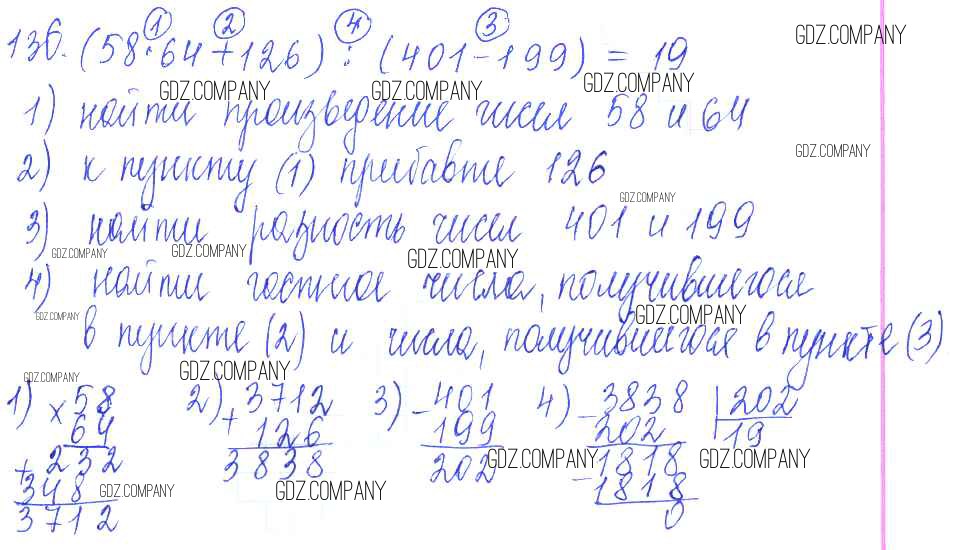 ① ② ④ ③
136. (58·64+126) : (401-199) = 19
1) найти произведение чисел 58 и 64
2) к пункту (1) прибавте 126
3) найти разность чисел 401 и 199
4) найти частное числа, получившегося
в пункте (2) и числа, получившегося в пункте (3)
1) × 58 2) + 3712 3) - 401 4) - 3838 | 202
64 126 199 202 19
+ 232 3838 202 - 1818
348 1818
3712 0
GDZ.COMPANY
GDZ.COMPANY GDZ.COMPANY GDZ.COMPANY
GDZ.COMPANY
GDZ.COMPANY
GDZ.COMPANY GDZ.COMPANY GDZ.COMPANY
GDZ.COMPANY GDZ.COMPANY
GDZ.COMPANY GDZ.COMPANY
GDZ.COMPANY GDZ.COMPANY
GDZ.COMPANY GDZ.COMPANY